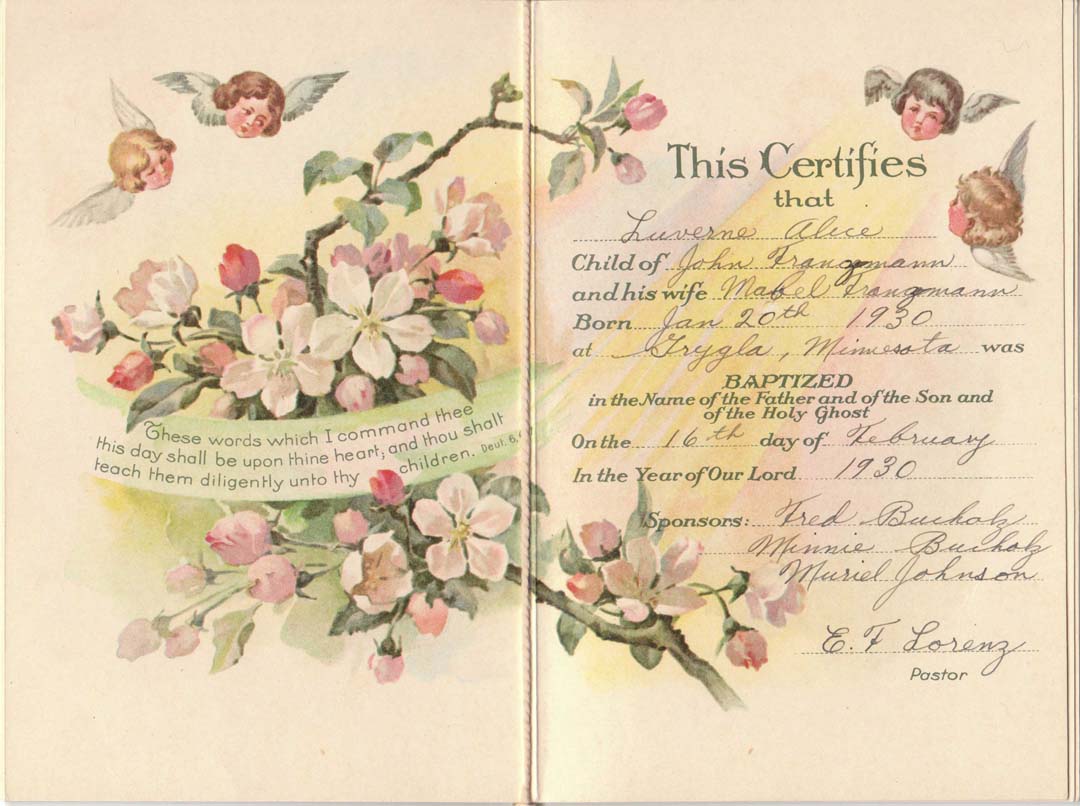 These words which I command thee
this day shall be upon thine heart; and thou shalt
teach them diligently unto thy children. Deut. 6,
This Certifies
that
Luverne Alice
Child of John Frangmann
and his wife Mabel Frangmann
Born Jan 20th 1930
at Grygla, Minnesota was
BAPTIZED
in the Name of the Father and of the Son and
of the Holy Ghost
On the 16th day of February
In the Year of Our Lord 1930
Sponsors: Fred Bucholz
Minnie Bucholz
Muriel Johnson
E. F Lorenz
Pastor